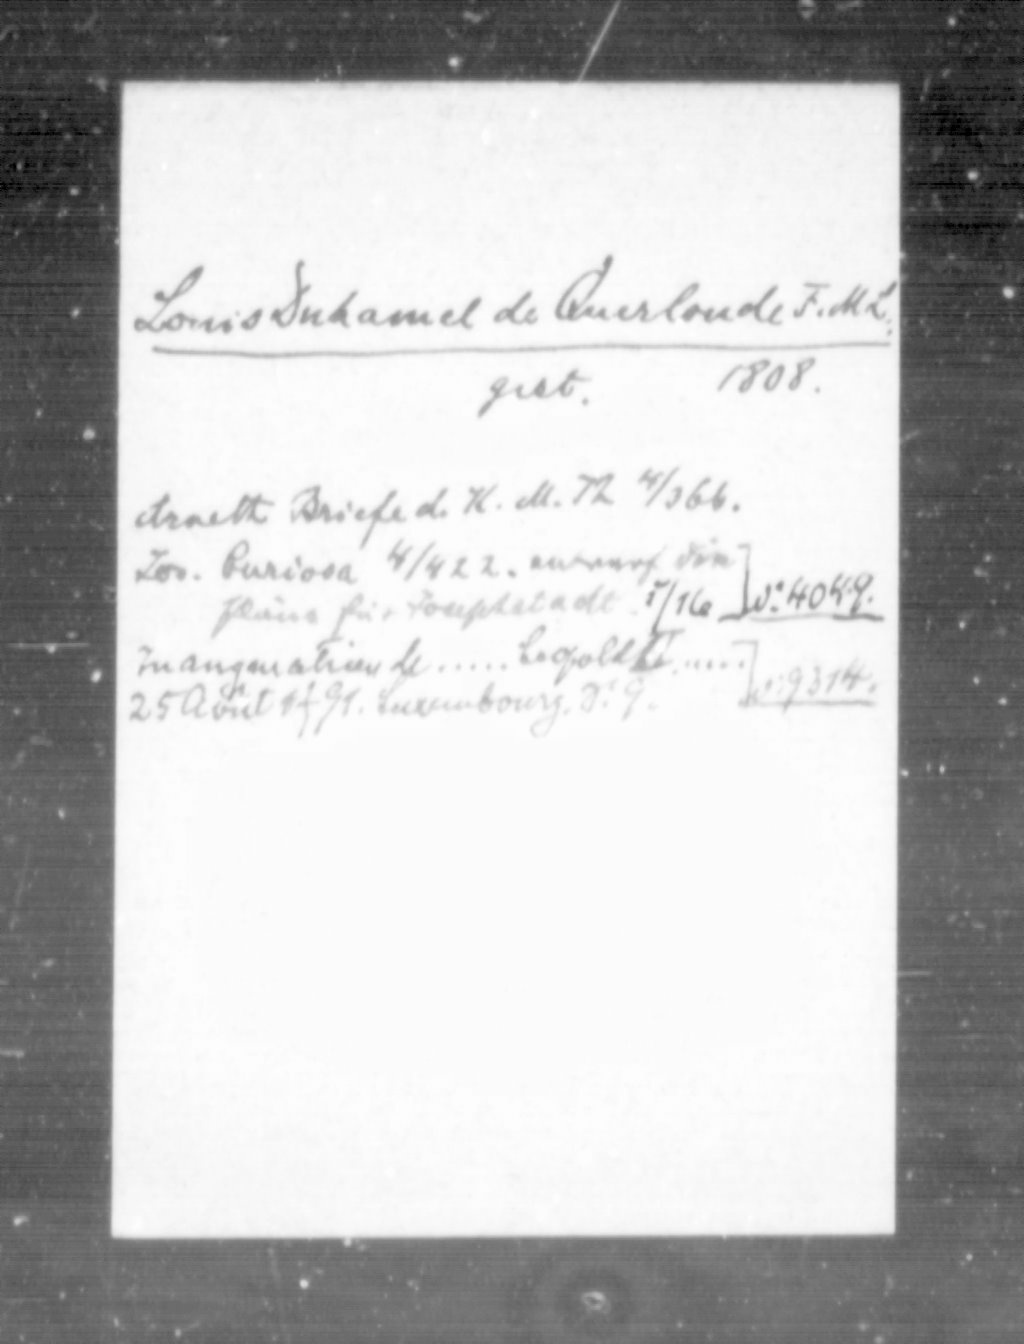 Louis Duhamel de Querlonde F.M.L.
gest. 1808.
Arneth Briefe d. K. M. Th 4/366.
Jos. Curiosa 4/422. entwarf die
Pläne für Josephstadt. I/16 N: 4049.
Inauguration de ..... Leopold II .....
25 Août 1791. Luxembourg. S. 9. N: 9314.